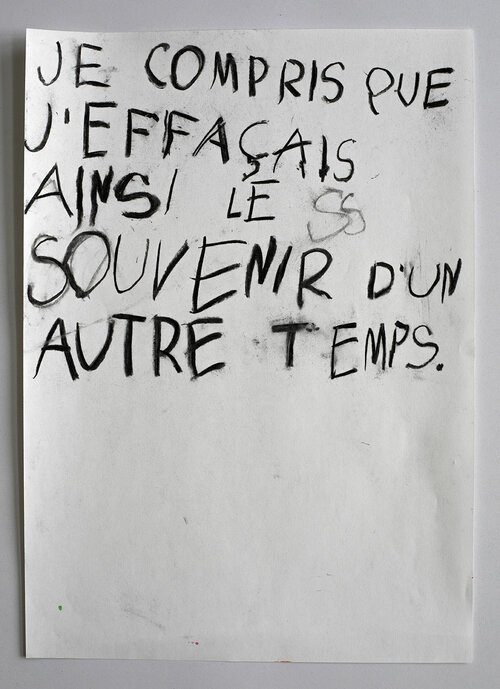 JE COMPRIS QUE
J'EFFAÇAIS
AINSI LE SS
SOUVENIR D'UN
AUTRE TEMPS.